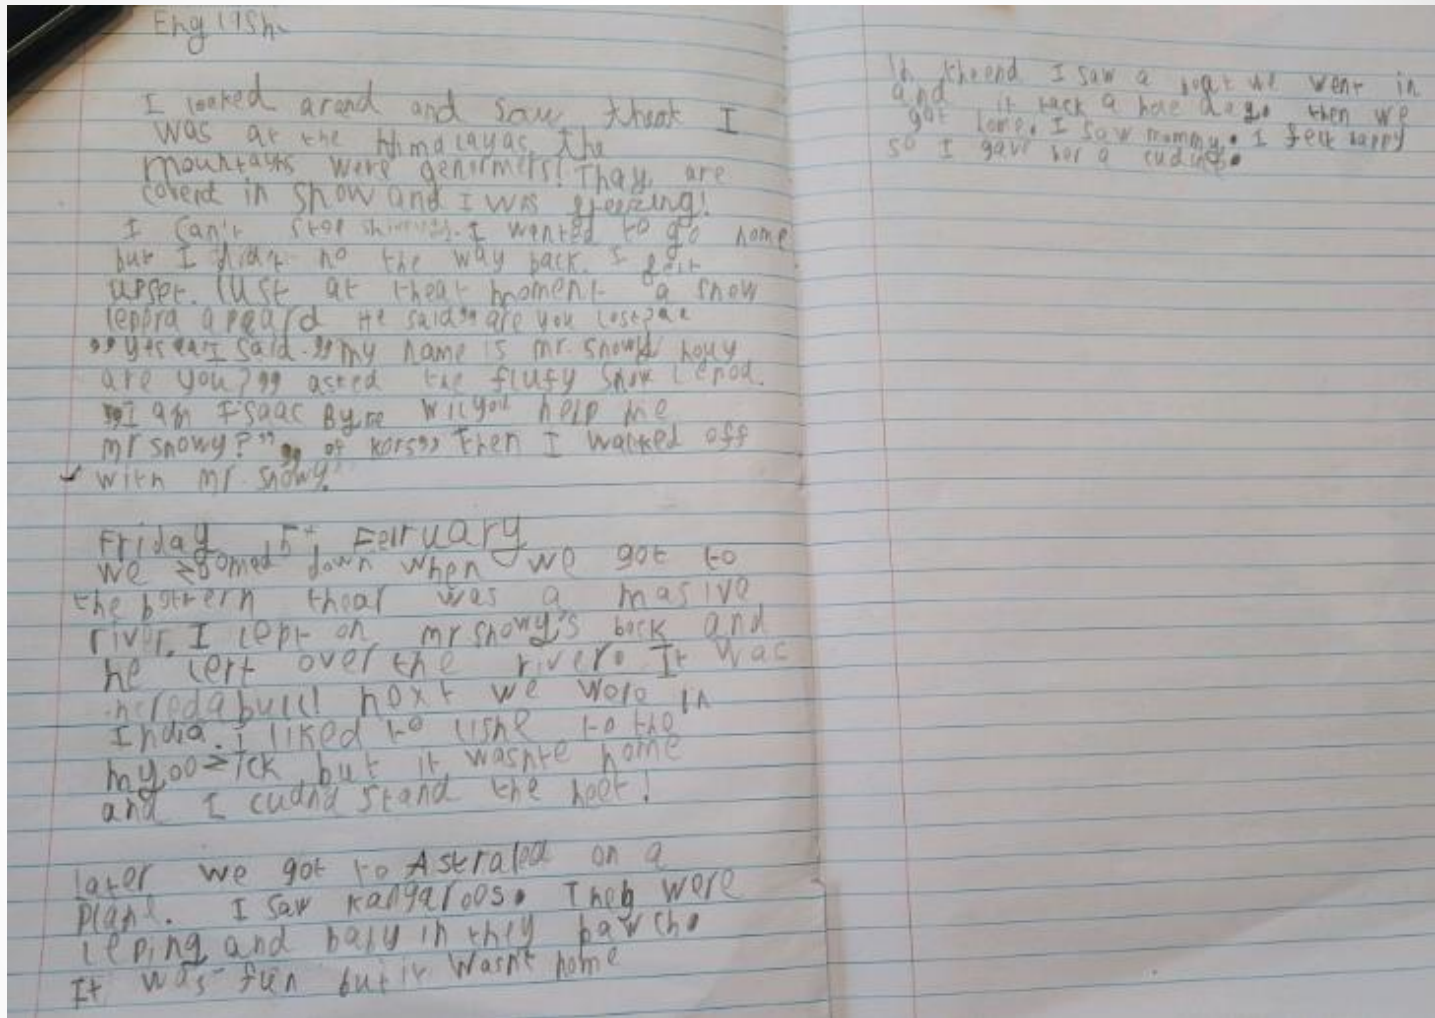 English
I looked arand and saw theat I
was at the Himalayas. the
mountayns were genormers! Thay are
coverd in snow and I was freezing!
I can't stop shivring. I wented to go home
but I didnt no the way back. I felt
upset. Just at theat moment a snow
leppra apeard He said "are you lost
"yes" I said. "my name is mr. snowy houy
are you?" asked the flufy snow lepod.
"I am Isaac Byrne wil you help me
mr snowy?" "of kors" then I walked off
with mr. snowy.
Friday 5t Februrary
we zoomed down when we got to
the bottern thear was a masive
river. I lept on mr snowy's back and
he lept over the river. It was
incredabull! next we were in
India. I liked to lisne to the
myoozick but it wasnte home
and I cudnd stand the heet!
later we got to Astraled on a
plane. I saw kangaroos. They were
leping and baby in they pawch.
It was fun but it wasnt home
In the end I saw a boat we went in
and it tack a hole day. then we
got home. I saw mommy. I felt happy
so I gave her a cuddle.